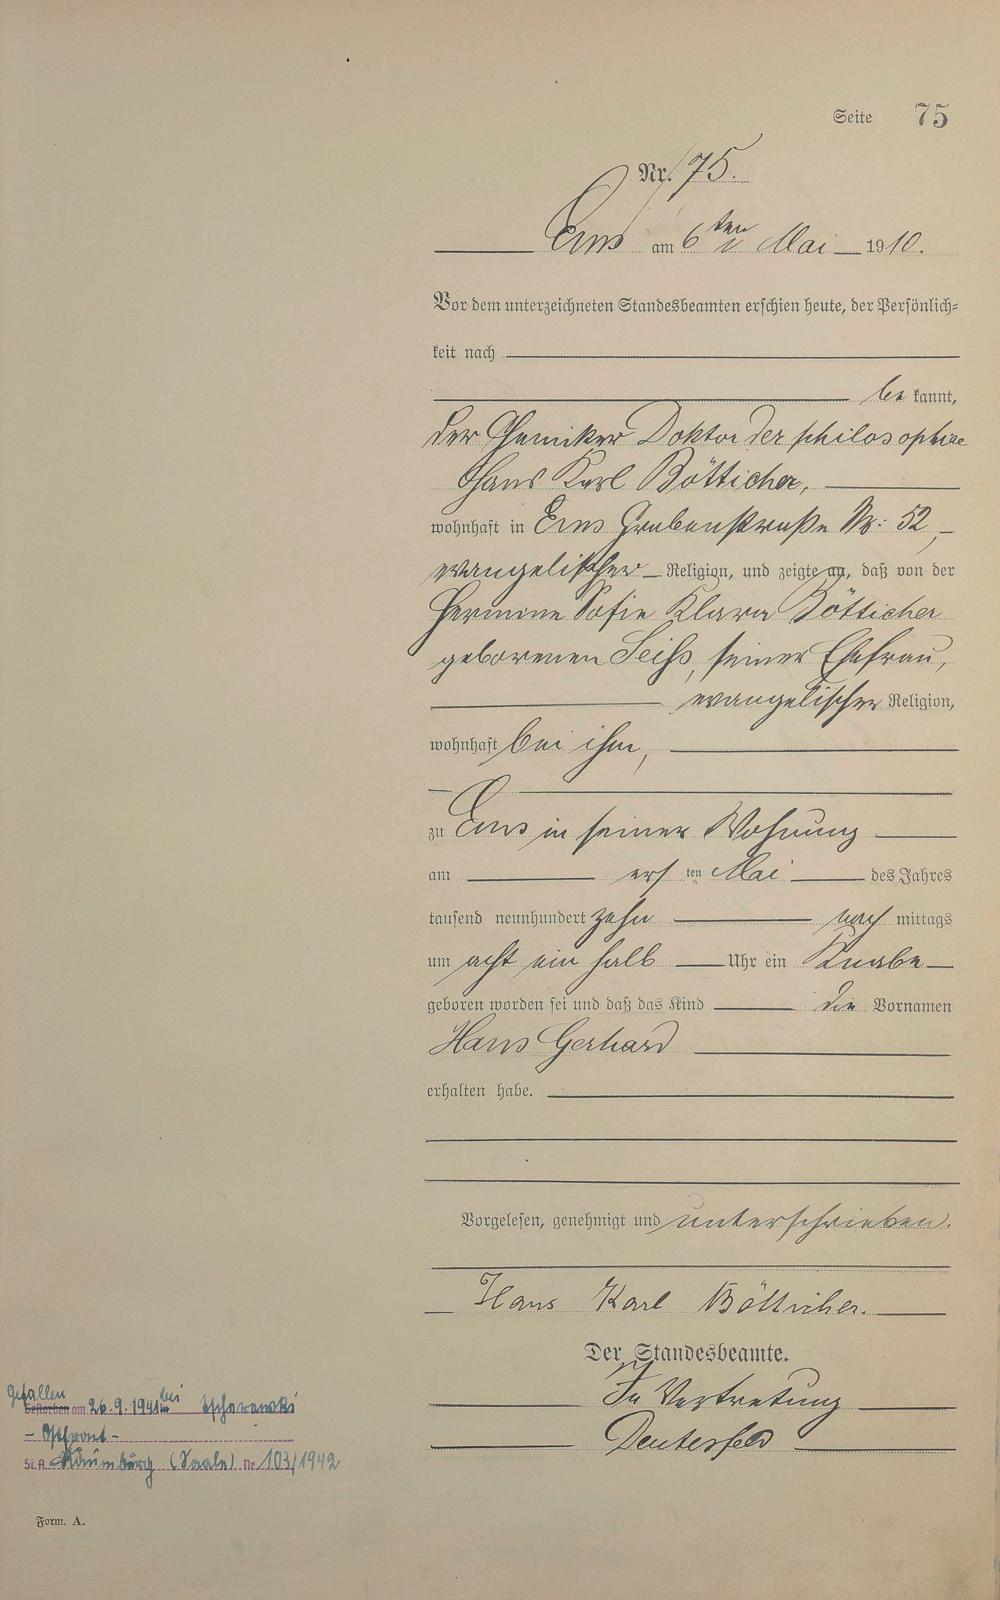 Seite 75
Nr. 75.
Ems am 6ten Mai 1910.
Vor dem unterzeichneten Standesbeamten erschien heute, der Persönlich-
keit nach
be kannt,
der Chemiker Doktor der philosophie
Hans Karl Bötticher,
wohnhaft in Ems Grabenstraße Nr: 52,
evangelischer Religion, und zeigte an, daß von der
Hermine Sofie Klara Bötticher
geborenen Seiß, seiner Ehefrau,
evangelischer Religion,
wohnhaft bei ihm,
zu Ems in seiner Wohnung
am ersten Mai des Jahres
tausend neunhundert zehn nach mittags
um acht ein halb Uhr ein Knabe
geboren worden sei und daß das Kind die Vornamen
Hans Gerhard
erhalten habe.
Vorgelesen, genehmigt und unterschrieben.
Hans Karl Bötticher.
Der Standesbeamte.
In Vertretung
Deutesfeld
Gefallen bei
Gestorben am 26.9.1941 in
- Ostfront -
St.A. Naumburg (Saale) Nr 103/1942
Form. A.